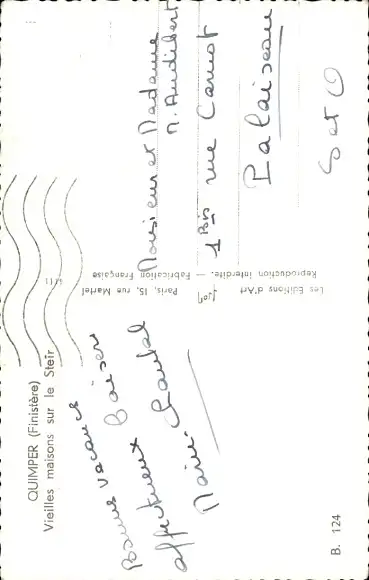 QUIMPER (Finistère)
Vieilles maisons sur le Steir
Bonnes vacances
affectueux baisers
Marie Chantal
B. 124
Les Editions d'Art Jos Paris, 15, rue Martel
Reproduction interdite. — Fabrication Française
Monsieur et Madame
M. Audibert
1 Bis rue Carnot
Palaiseau
S et O